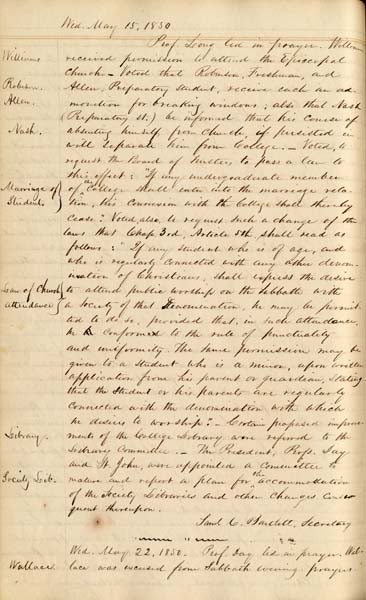 Wed. May 15, 1850
Prof. Long led in prayer. Williams
Williams
received permission to attend the Episcopal
Church — Voted that Robinson, Freshman, and
Robinson.
Allen, Preparatory student, receive each an ad-
Allen.
monition for breaking windows; also that Nash
(Preparatory st.) be informed that his course of
Nash.
absenting himself from Church, if persisted in
will separate him from College. — Voted, to
request the Board of Trustees, to pass a law to
this effect: "If any undergraduate member
Marriage of
of the College shall enter into the marriage rela-
Students
tion, his connexion with the College shall thereby
cease." Voted, also, to request such a change of the
laws that Chap. 3rd, Article 5th, shall read as
follows: "If any student who is of age, and
who is regularly connected with any other denom-
ination of Christians, shall express the desire
Law of Church
to attend public worship on the Sabbath with
attendance
a Society of that Denomination, he may be permit-
ted to do so, provided that, in such attendance,
he conform to the rule of punctuality
and uniformity. The same permission may be
given to a student who is a minor, upon written
application from his parent or guardian, stating
that the Student or his parents are regularly
connected with the denomination with which
he desires to worship." — Certain proposed improve-
Library.
ments of the College Library were referred to the
Library Committee. — The President, Profs. Day
and St. John, were appointed a Committee to
Society Lib.
mature and report a plan for the accommodation
of the Society Libraries and other changes conse-
quent thereupon.
Saml. C. Bartlett, Secretary
Wed. May 22, 1850. Prof. Day led in prayer. Wal-
Wallace
lace was excused from Sabbath evening prayers.